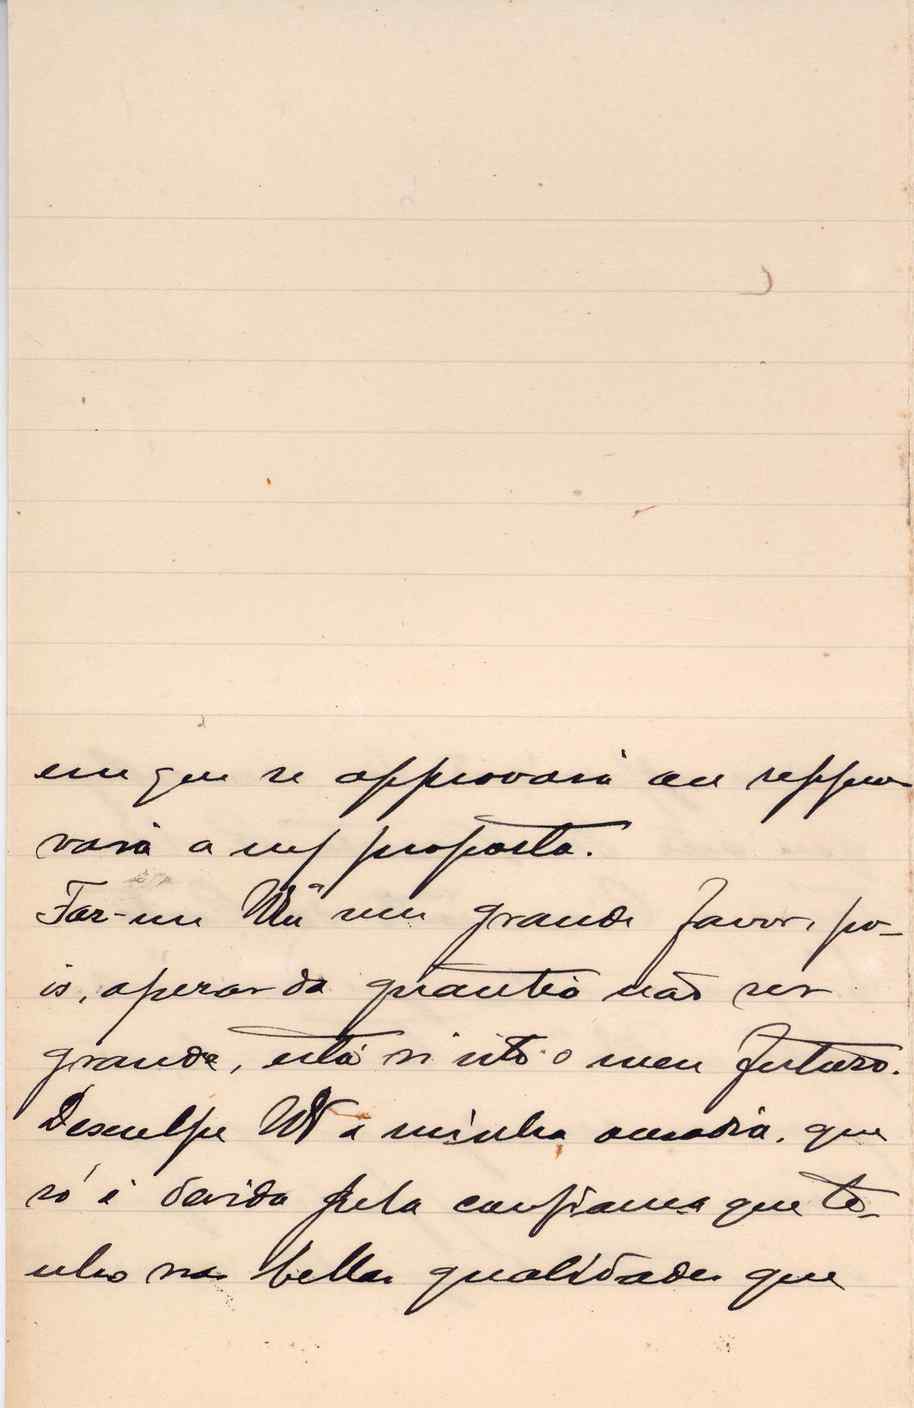 em que se approvará ou reppro
vará a m/ proposta.
Far-me Mcê um grande favor, po-
is, apezar da quantia não ser
grande, está n'isto o meu futuro.
Desculpe a minha ousadia, que
só é devida pela confiança que te-
nho nas bellas qualidades que